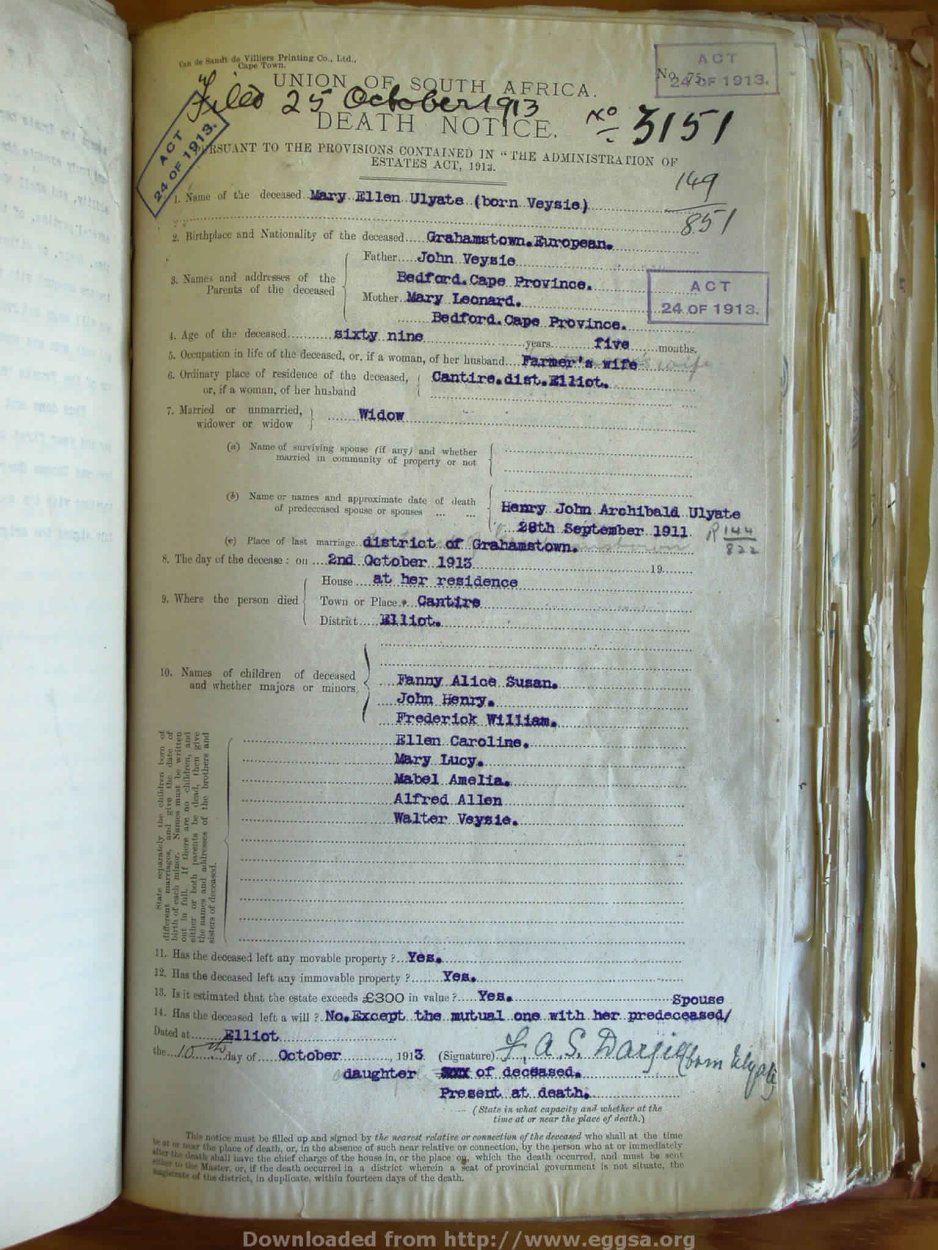 Van de Sandt de Villiers Printing Co., Ltd.,
Cape Town.
ACT
24 OF 1913.
UNION OF SOUTH AFRICA.
Filed 25 October 1913
DEATH NOTICE.
No 3151
ACT
24 OF 1913.
PURSUANT TO THE PROVISIONS CONTAINED IN "THE ADMINISTRATION OF
ESTATES ACT, 1913.
149
851
1. Name of the deceased Mary Ellen Ulyate (born Veysie)
2. Birthplace and Nationality of the deceased Grahamstown.European.
3. Names and addresses of the
Parents of the deceased
Father John Veysie
Bedford.Cape Province.
Mother Mary Leonard.
Bedford.Cape Province.
ACT
24 OF 1913.
4. Age of the deceased sixty nine years five months,
5. Occupation in life of the deceased, or, if a woman, of her husband Farmer's wife
6. Ordinary place of residence of the deceased,
or, if a woman, of her husband
Cantire.dist.Elliot.
7. Married or unmarried,
widower or widow
Widow
(a) Name of surviving spouse (if any) and whether
married in community of property or not
(b) Name or names and approximate date of death
of predeceased spouse or spouses ... ...
Henry John Archibald Ulyate
28th September 1911
R 144
822
(c) Place of last marriage district of Grahamstown.
8. The day of the decease: on 2nd October 1913 19
9. Where the person died
House at her residence
Town or Place Cantire
District Elliot.
10. Names of children of deceased
and whether majors or minors.
Fanny Alice Susan.
John Henry.
Frederick William.
Ellen Caroline.
Mary Lucy.
Mabel Amelia.
Alfred Allen
Walter Veysie.
State separately the children born of
different marriages, and give the date of
birth of each minor. Names must be written
out in full. If there are no children, and
either or both parents be dead, then give
the names and addresses of the brothers and
sisters of deceased.
11. Has the deceased left any movable property ? Yes.
12. Has the deceased left any immovable property ? Yes.
13. Is it estimated that the estate exceeds £300 in value ? Yes.
Spouse
14. Has the deceased left a will ? No.Except the mutual one with her predeceased/
Dated at Elliot
the 10th day of October, 1913 (Signature) F. A. S. Dargie (born Ulyate
daughter of deceased.
Present at death.
(State in what capacity and whether at the
time at or near the place of death.)
This notice must be filled up and signed by the nearest relative or connection of the deceased who shall at the time
be at or near the place of death, or, in the absence of such near relative or connection, by the person who at or immediately
after the death shall have the chief charge of the house in, or the place on, which the death occurred, and must be sent
either to the Master, or, if the death occurred in a district wherein a seat of provincial government is not situate, the
magistrate of the district, in duplicate, within fourteen days of the death.
Downloaded from http://www.eggsa.org